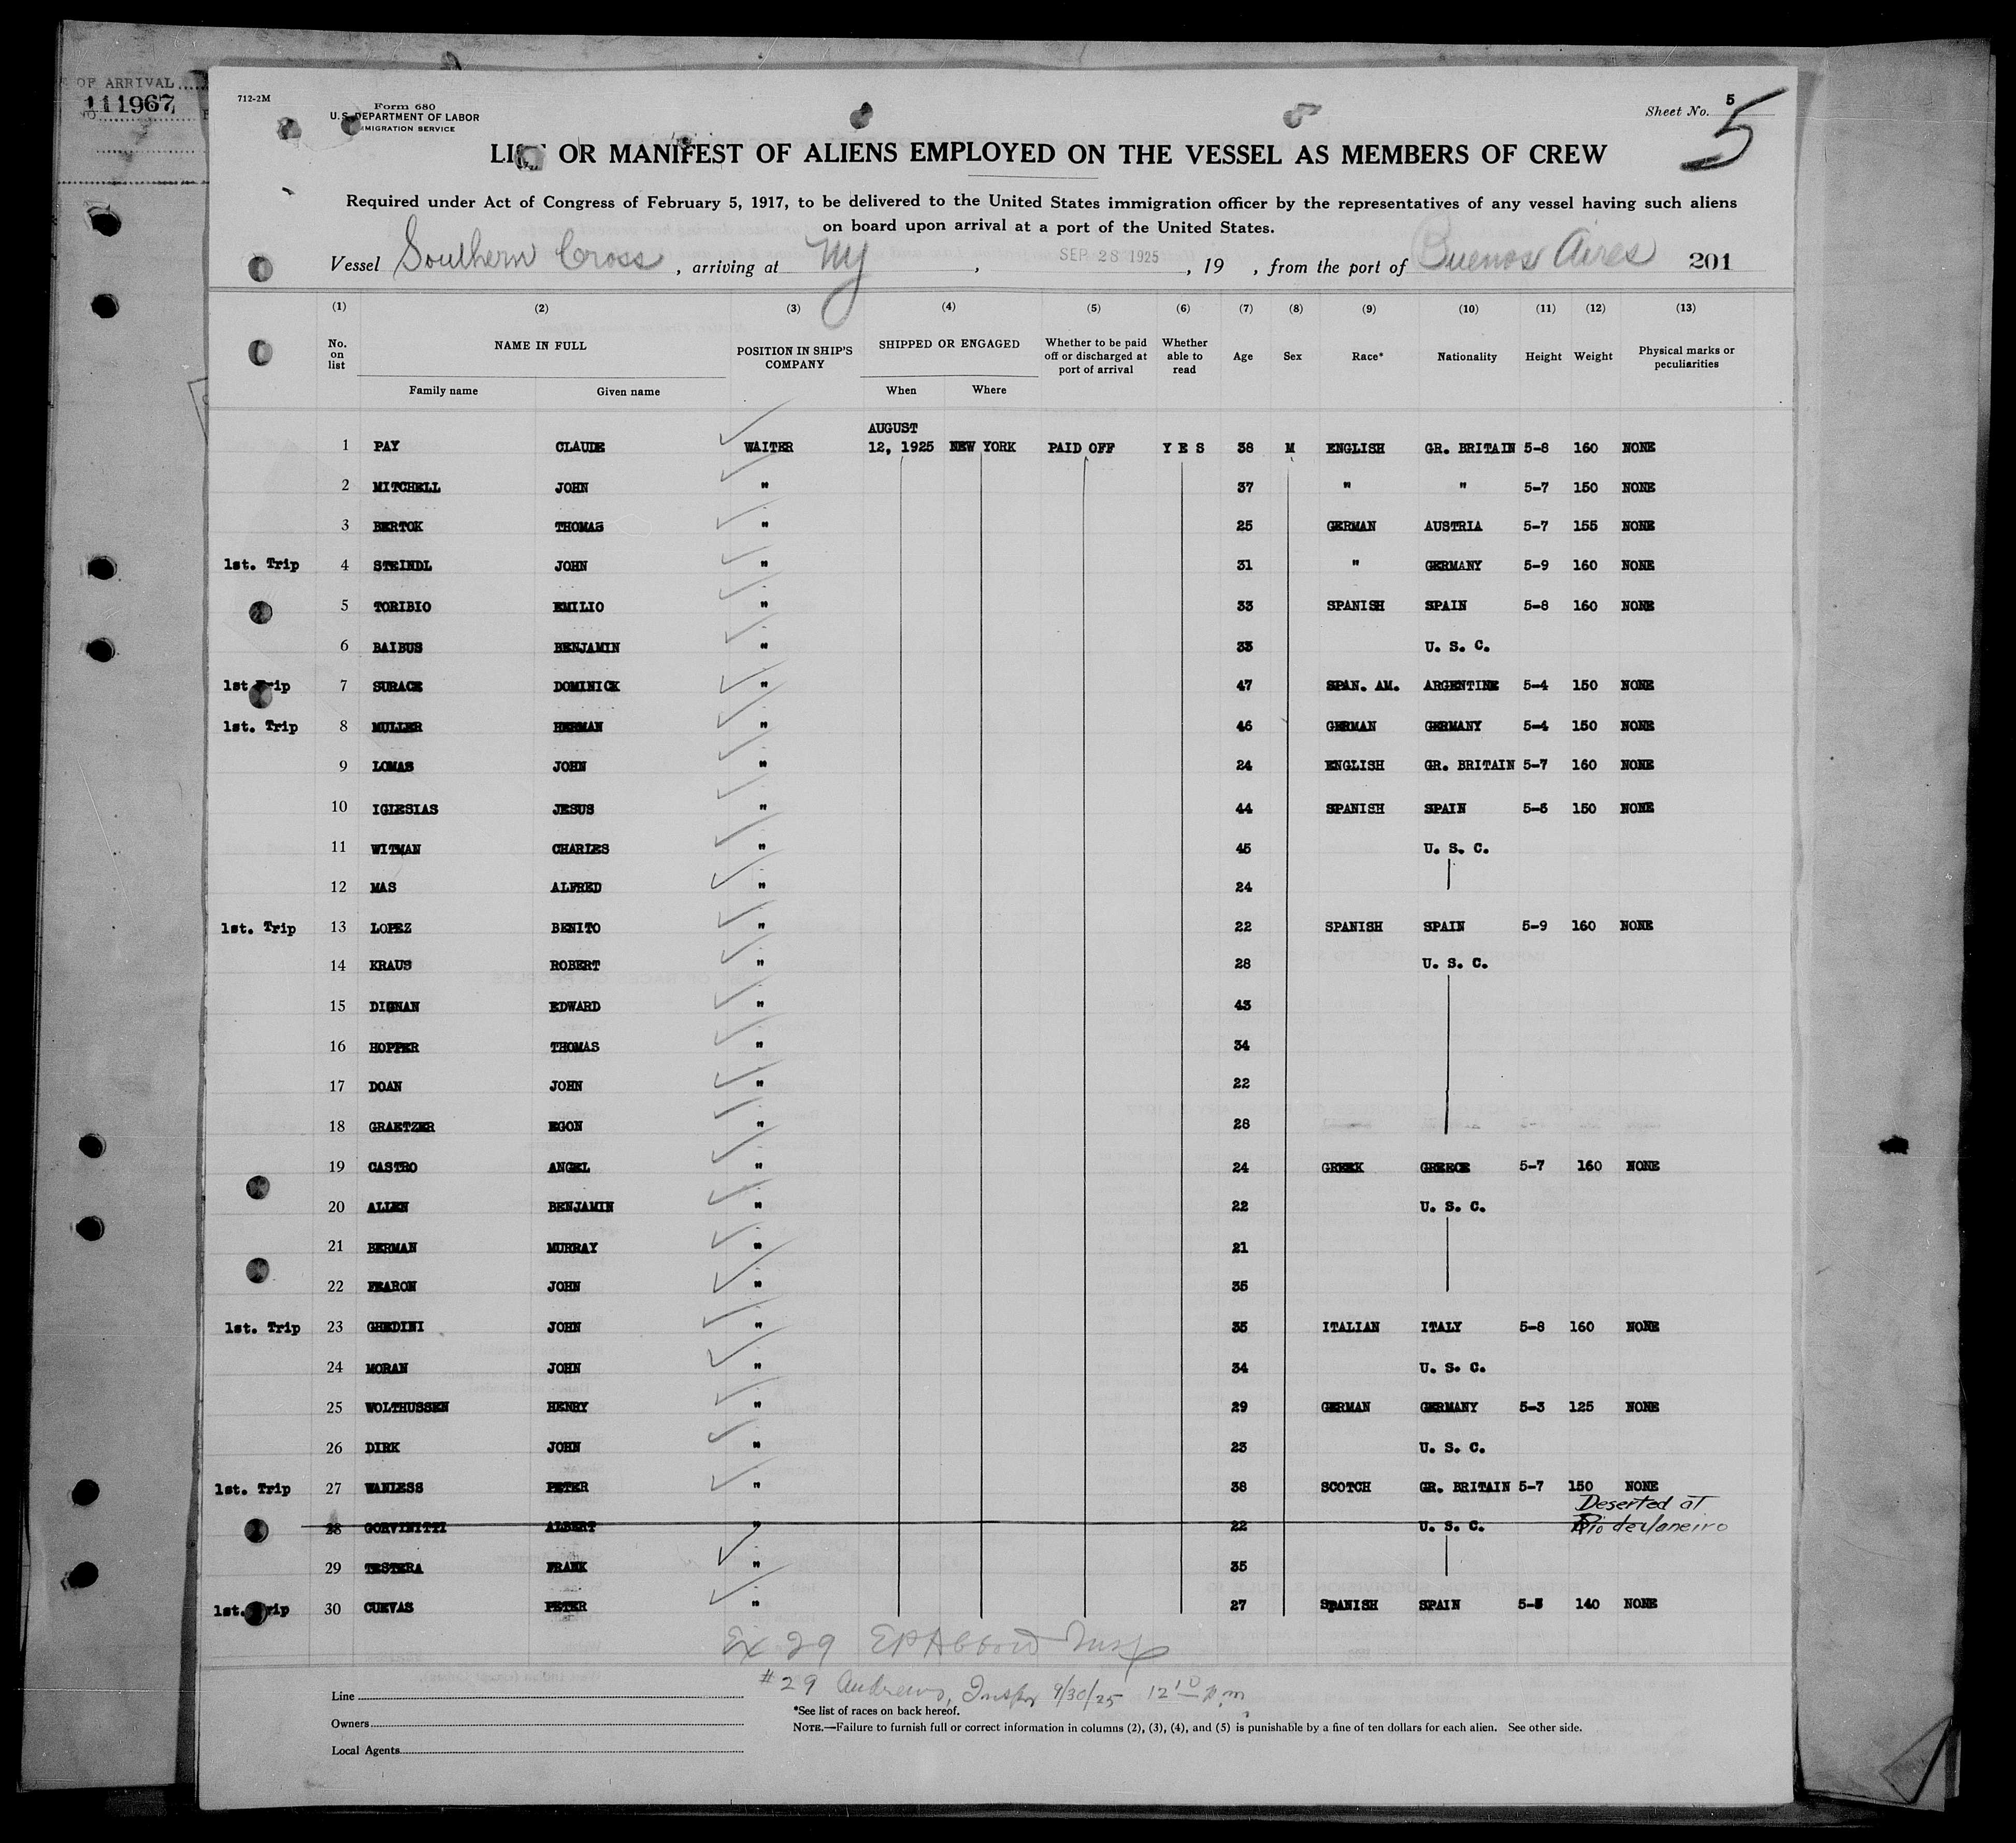 E OF ARRIVAL
111967
712-2M
Form 680
U. S. DEPARTMENT OF LABOR
IMMIGRATION SERVICE
Sheet No. 5
5
LIST OR MANIFEST OF ALIENS EMPLOYED ON THE VESSEL AS MEMBERS OF CREW
Required under Act of Congress of February 5, 1917, to be delivered to the United States immigration officer by the representatives of any vessel having such aliens
on board upon arrival at a port of the United States.
Vessel Southern Cross, arriving at NY, SEP 28 1925, 19 , from the port of Buenos Aires 201
(1) (2) (3) (4) (5) (6) (7) (8) (9) (10) (11) (12) (13)
No. on list NAME IN FULL POSITION IN SHIP'S COMPANY SHIPPED OR ENGAGED Whether to be paid off or discharged at port of arrival Whether able to read Age Sex Race* Nationality Height Weight Physical marks or peculiarities
Family name Given name When Where
AUGUST
1 PAY CLAUDE WAITER 12, 1925 NEW YORK PAID OFF YES 38 M ENGLISH GR. BRITAIN 5-8 160 NONE
2 MITCHELL JOHN " 37 " " 5-7 150 NONE
3 BERTOK THOMAS " 25 GERMAN AUSTRIA 5-7 155 NONE
1st. Trip 4 STEINDL JOHN " 31 " GERMANY 5-9 160 NONE
5 TORIBIO EMILIO " 33 SPANISH SPAIN 5-8 160 NONE
6 BAIBUS BENJAMIN " 33 U. S. C.
1st Trip 7 SURACE DOMINICK " 47 SPAN. AM. ARGENTINE 5-4 150 NONE
1st. Trip 8 MULLER HERMAN " 46 GERMAN GERMANY 5-4 150 NONE
9 LOMAS JOHN " 24 ENGLISH GR. BRITAIN 5-7 160 NONE
10 IGLESIAS JESUS " 44 SPANISH SPAIN 5-6 150 NONE
11 WITMAN CHARLES " 45 U. S. C.
12 MAS ALFRED " 24
1st. Trip 13 LOPEZ BENITO " 22 SPANISH SPAIN 5-9 160 NONE
14 KRAUS ROBERT " 28 U. S. C.
15 DIGNAN EDWARD " 43
16 HOPPER THOMAS " 34
17 DOAN JOHN " 22
18 GRAETZER EGON " 28
19 CASTRO ANGEL " 24 GREEK GREECE 5-7 160 NONE
20 ALLEN BENJAMIN " 22 U. S. C.
21 BERMAN MURRAY " 21
22 FEARON JOHN " 35
1st. Trip 23 GHEDINI JOHN " 35 ITALIAN ITALY 5-8 160 NONE
24 MORAN JOHN " 34 U. S. C.
25 WOLTHUSSEN HENRY " 29 GERMAN GERMANY 5-3 125 NONE
26 DIRK JOHN " 23 U. S. C.
1st. Trip 27 WANLESS PETER " 38 SCOTCH GR. BRITAIN 5-7 150 NONE
Deserted at
28 GORVINITTI ALBERT " 22 U. S. C. Rio de Janeiro
29 TESTERA FRANK " 35
1st. Trip 30 CUEVAS PETER " 27 SPANISH SPAIN 5-5 140 NONE
Ex 29 Insp
#29 Andrews, Inspr 9/30/25 12 10 p.m
Line
*See list of races on back hereof.
Owners
NOTE.—Failure to furnish full or correct information in columns (2), (3), (4), and (5) is punishable by a fine of ten dollars for each alien. See other side.
Local Agents